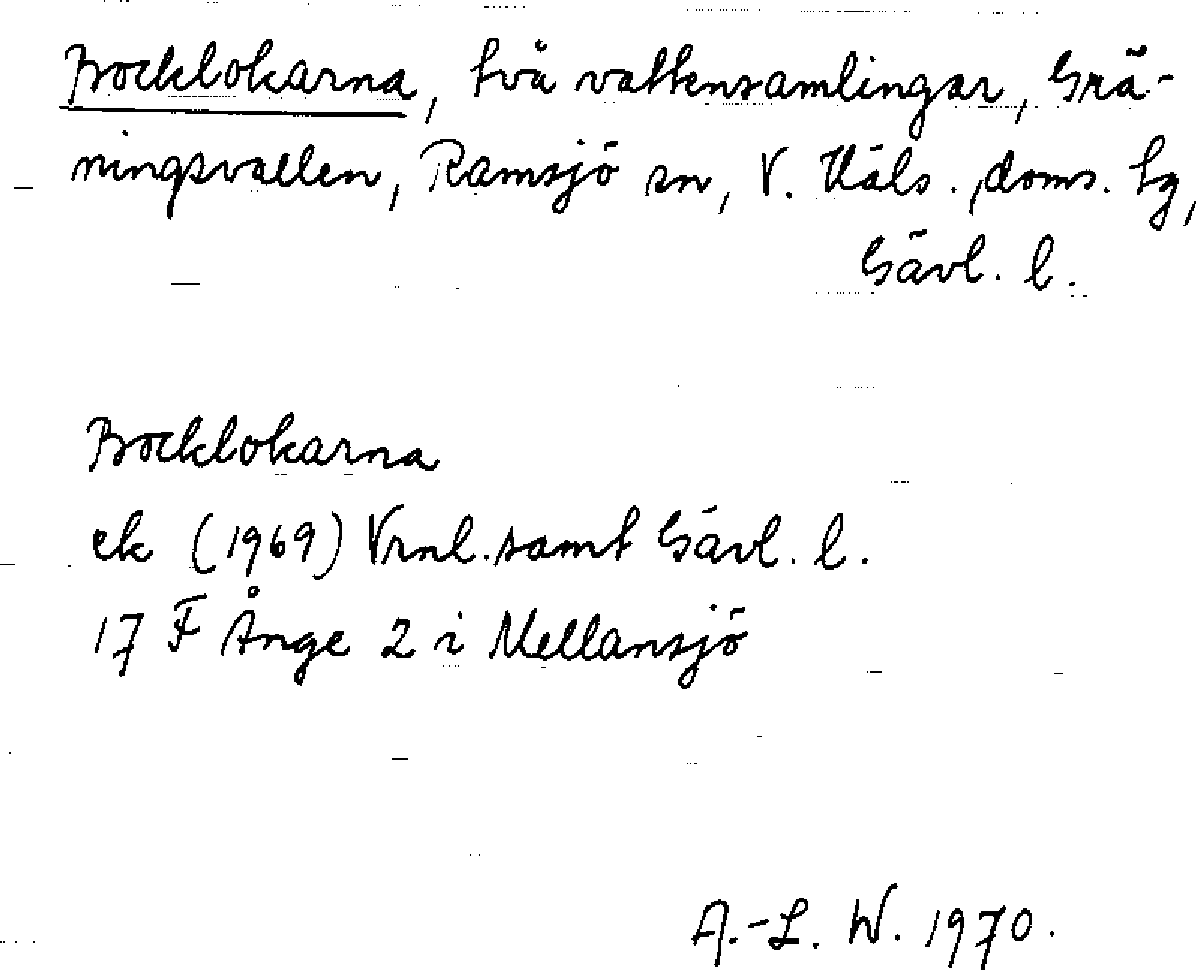 Bocklokarna, två vattensamlingar, Grä-
ningsvallen, Ramsjö sn, V. Häls. doms. lg,
Gävl. l.
Bocklokarna
ek (1969) Vrnl. samt Gävl. l.
17 F Ånge 2 i Mellansjö
A.-L. W. 1970.